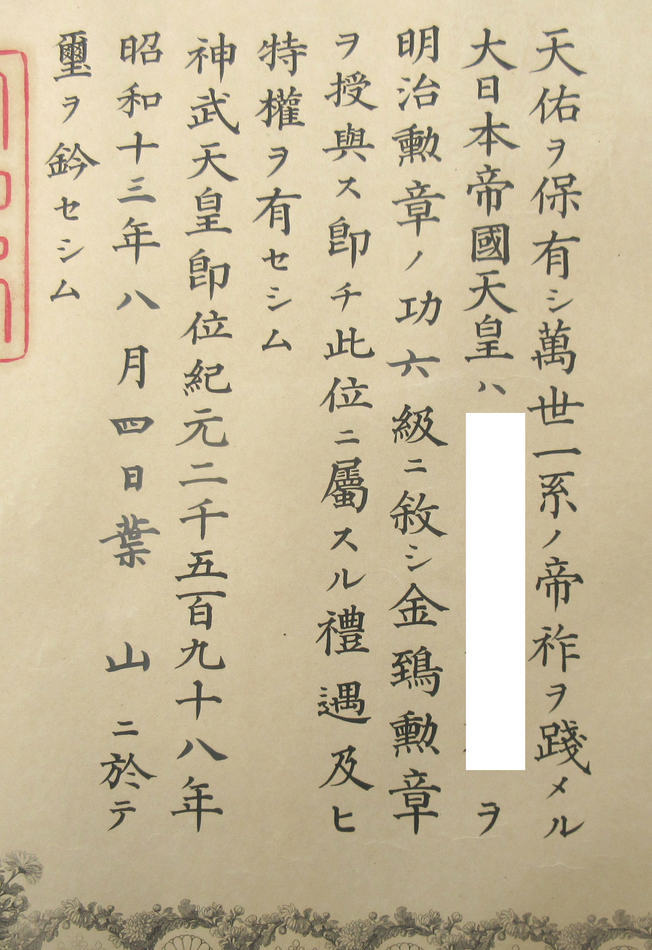 天佑ヲ保有シ萬世一系ノ帝祚ヲ踐メル
大日本帝國天皇ハ
ヲ
明治勳章ノ功六級ニ敘シ金鵄勳章
ヲ授與ス卽チ此位ニ屬スル禮遇及ヒ
特權ヲ有セシム
神武天皇卽位紀元二千五百九十八年
昭和十三年八月四日葉山ニ於テ
璽ヲ鈐セシム